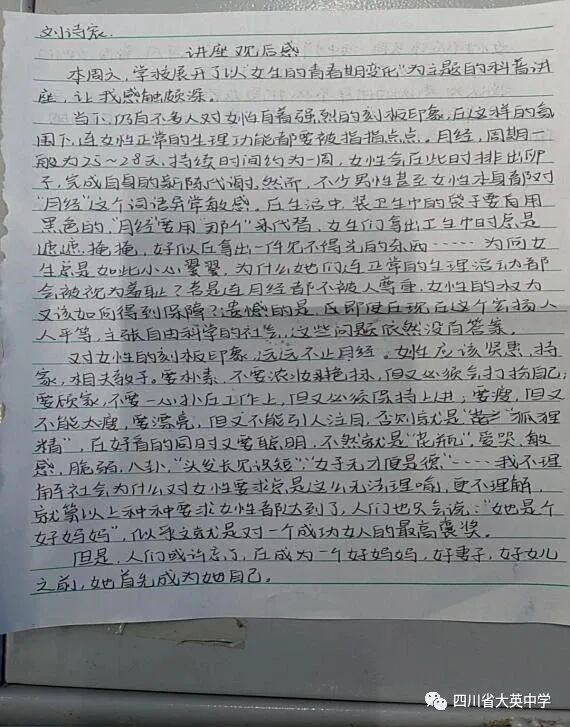 刘诗宸
讲座观后感
本周六,学校展开了以“女生的青春期变化”为主题的科普讲
座,让我感触颇深。
当下,仍有不多人对女性有着强烈的刻板印象,在这样的氛
围下,连女性正常的生理功能都要被指指点点。月经,周期一
般为25~28天,持续时间约为一周,女性会在此时排出卵
子,完成自身的新陈代谢。然而,不少男性甚至女性本身都对
“月经”这个词语异常敏感。在生活中,装卫生巾的袋子要有用
黑色的,“月经”要用“那个”来代替,女生们拿出卫生巾时总是
遮遮掩掩,好似在拿出一件见不得光的东西……为何女
生总是如此小心翼翼,为什么她们连正常的生理活动都
会被视为羞耻?若是连月经都不被人尊重,女性的权力
又该如何得到保障?遗憾的是,在即使在现在这个宏扬人
人平等,主张自由科学的社会,这些问题依然没有答案。
对女性的刻板印象,远远不止月经。女性应该贤惠,持
家,相夫教子。要朴素,不要浓妆艳抹,但又必须会打扮自己;
要顾家,不要一心扑在工作上,但又必须保持上进,要瘦,但又
不能太瘦,要漂亮,但又不能引人注目,否则就是“狐狸
精”,在好看的同时又要聪明,不然就是“花瓶”,爱哭,敏
感,脆弱,八卦,“头发长见识短”,“女子无才便是德”……我不理
解社会为什么对女性要求总是这么无法理喻,更不理解,
就算以上种种要求女性都达到了,人们也只会说:“她是个
好妈妈”,似乎这就是对一个成功女人的最高褒奖。
但是,人们或许忘了,在成为一个好妈妈,好妻子,好女儿
之前,她首先成为她自己。
四川省大英中学